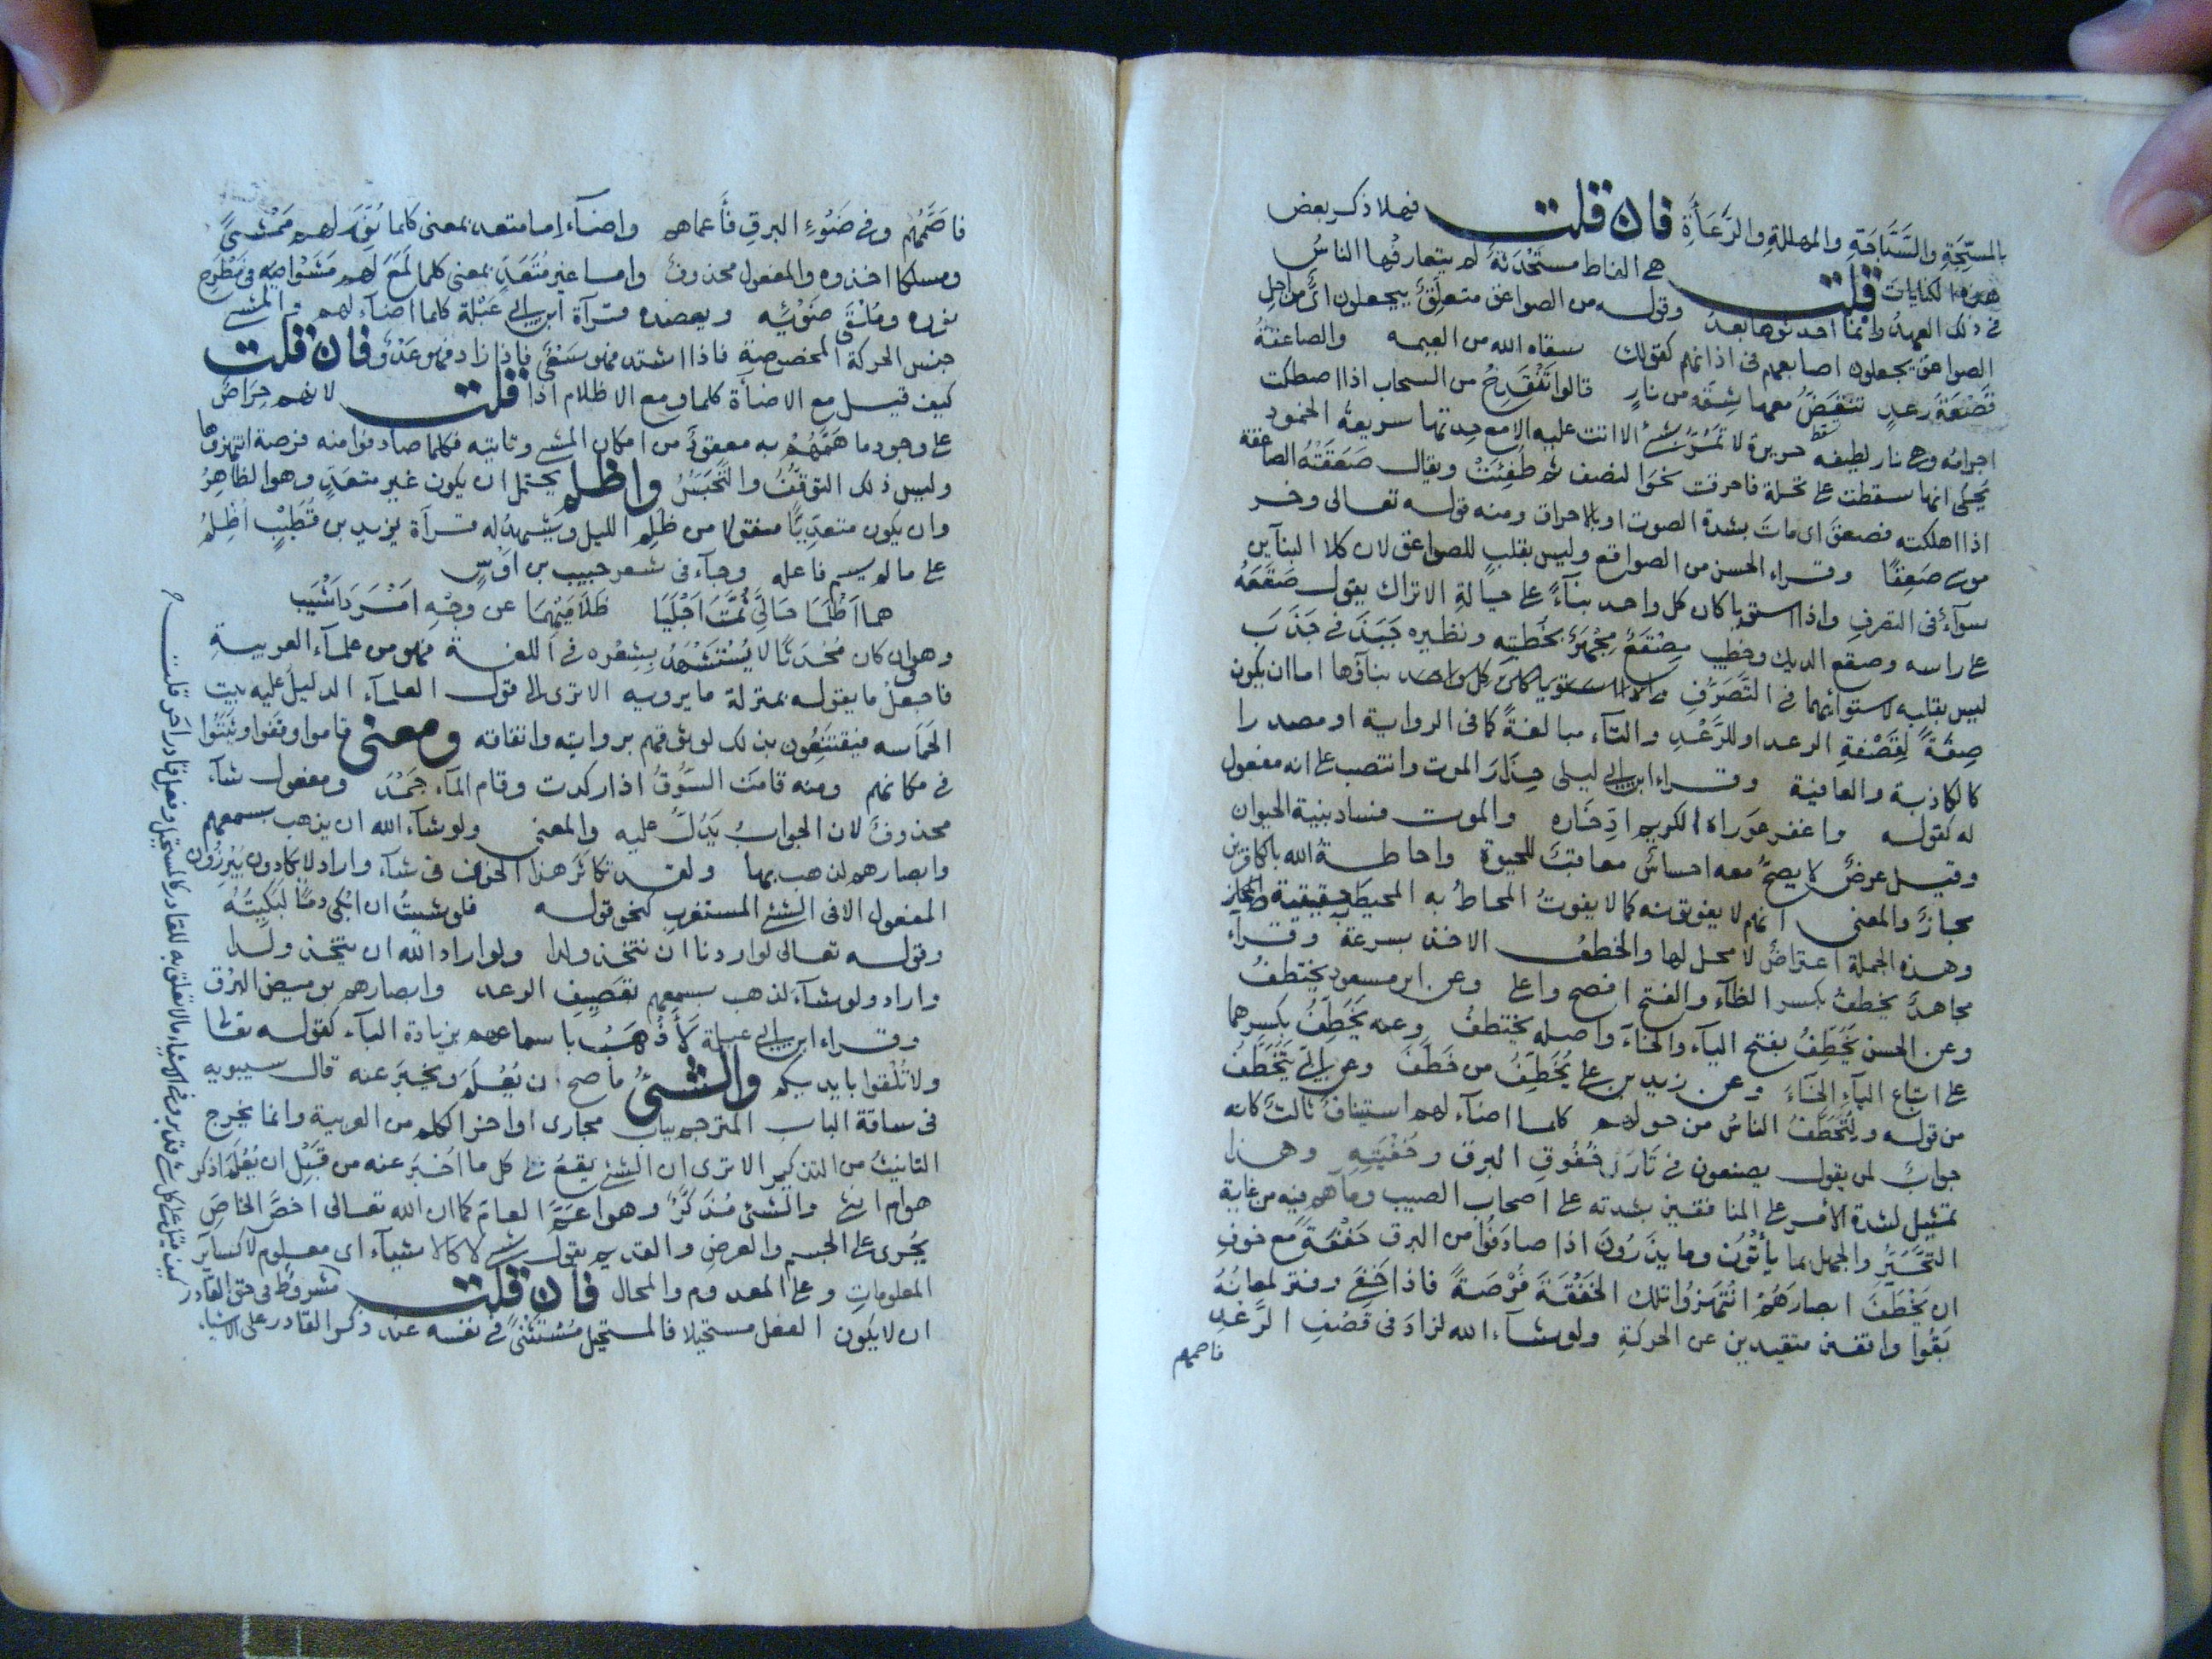 بالمسبّحة والسبّاحة والمهللة والدّعّاءة فان قلت فهلا ذكر بعض
هذه الكنايات قلت هي الفاظ مستحدثة لم يتعارفها الناس
في ذلك العهد وانما احدثوها بعد وقوله من الصواعق متعلق بيجعلون اي من اجل
الصواعق يجعلون اصابعهم في اذانهم كقولك سقاه الله من العيمه والصاعقة
قصفة رعد تنقض معها شقة من نار قالوا تنقدح من السحاب اذا اصطكت
اجرامه وهي نار لطيفه حديدة لا تمر بشئ الا اتت عليه الا مع حدتها سريعة الخمود
يحكى انها سقطت على نخلة فاحرقت نحو النصف ثم طفئت ويقال صعقته الصاعقة
اذا اهلكته فصعق اى مات بشدة الصوت او بالاحراق ومنه قوله تعالى وخر
موسى صعقا وقراء الحسن من الصواقع وليس بقلب للصواعق لان كلا البنآين
سوآء في التصرف واذا استويا كان كل واحد بنآء على حياله الا تراك يقول صقعه
على راسه وصقع الديك وخطيب مصقع مجهر بخطبته ونظيره جبذ في جذب
ليس بقلبه لاستوائهما في التصرف واذا استويا كان كل واحد بناؤها اما ان يكون
صفة لقصفة الرعد او للرعد والتآء مبالغة كما في الرواية او مصدرا
كالكاذبة والعافية وقراء ابن ابي ليلى حذار الموت وانتصب على انه مفعول
له كقوله واغفر عوراء الكريم ادخاره والموت فساد بنية الحيوان
وقيل عرض لا يصح معه احساس معاقب للحيوة واحاطة الله بالكافرين
مجاز والمعنى انهم لا يفوتونه كما لا يفوت المحاط به المحيط به حقيقة
وهذه الجملة اعتراض لا محل لها والخطف الاخذ بسرعة وقرآء
مجاهد يخطف بكسر الطآء والفتح افصح واعلى وعن ابن مسعود يختطف
وعن الحسن يخطف بفتح اليآء والخآء واصله يختطف وعنه يخطف بكسرهما
على اتباع اليآء الخآء وعن زيد بن علي يخطف من خطف وعن ابي يتخطف
من قوله ويتخطف الناس من حولهم كلما اضآء لهم استيناف ثالث كانه
جواب لمن يقول كيف يصنعون في تارتي خفوق البرق وخفيته وهذا
تمثيل لشدة الأمر على المنافقين بشدته على اصحاب الصيب وما هم فيه من غاية
التحير والجهل بما يأتون وما يذرون اذا صادفوا من البرق خفقة مع خوف
ان يخطف ابصارهم انتهزوا تلك الخفقة فرصة فاذا خفي وفتر لمعانه
بقوا واقفين متقيدين عن الحركة ولو شآء الله لزاد في قصف الرعد
فاصمهم
فاصمّهم وفي ضوء البرق فأعماهم واضآء اما متعد بمعنى كلما نوّر لهم ممشىً
ومسلكا اخذوه والمفعول محذوف واما غير متعد بمعنى كلما لمع لهم مشوا فيه في مطرح
نوره وملقى ضوئه ويعضده قرآة ابن ابي عبلة كلما اضآء لهم والمشي
جنس الحركة المخصوصة فاذا اشتد فهو سعي فاذا زاد فهو عدو فان قلت
كيف قيل مع الاضآة كلما ومع الاظلام اذا قلت لانهم حراص
على وجود ما همهم به معقود من امكان المشي وتأتيه فكلما صادفوا منه فرصة انتهزوها
وليس ذلك التوقف والتحبس واظلم يحتمل ان يكون غير متعد وهو الظاهر
وان يكون متعديا منقولا من ظلم الليل ويشهد له قرآة يزيد بن قطيب اظلم
على ما لم يسم فاعله وجآء في شعر حبيب بن اوس
هما اظلما حالي ثمت اجليا ظلاميهما عن وجه امرد اشيب
وهو وان كان محدثا لا يستشهد بشعره في اللغة فهو من علمآء العربية
فاجعل ما يقوله بمنزلة ما يرويه الا ترى الى قول العلمآء الدليل عليه بيت
الحماسه فيقتنعون بذلك لوثوقهم بروايته واتقانه ومعنى قاموا وقفوا وثبتوا
في مكانهم ومنه قامت السوق اذا ركدت وقام المآء جمد ومفعول شآء
محذوف لان الجواب يدل عليه والمعنى ولو شآء الله ان يذهب بسمعهم
وابصارهم لذهب بها ولقد تكاثر هذا الحذف في شآء واراد لا يكادون يبرزون
المفعول الا في الشئ المستغرب كنحو قوله فلو شيت ان ابكي دما لبكيته
وقوله تعالى لو اردنا ان نتخذ ولدا ولو اراد الله ان يتخذ ولدا
واراد ولو شآء لذهب بسمعهم بقصيف الرعد وابصارهم بوميض البرق
وقراء ابن ابي عبلة لأذهب باسماعهم بزيادة البآء كقوله تعالى
ولا تلقوا بايديكم والشئ ما صح ان يعلم ويخبر عنه قال سيبويه
في ساقة الباب المترجم بباب مجارى اواخر الكلم من العربية وانما يخرج
التانيث من التذكير الا ترى ان الشئ يقع على كل ما اخبر عنه من قبل ان يعلم اذكر
هو ام انثى والشئ مذكر وهو اعم العام كما ان الله تعالى اخص الخاص
يجرى على الجسم والعرض والقديم يقول شئ لا كالاشيآء اى معلوم لا كسآير
المعلومات وعلى المعدوم والمحال فان قلت
كيف قيل على كل شئ قدير وفي الاشياء ما لا تعلق به للقادر كالمستحيل وفعل قادر آخر قلت
مشروط في حق القادر
ان لا يكون الفعل مستحيلا فالمستحيل مستثنى في نفسه عند ذكر القادر على الاشيآء